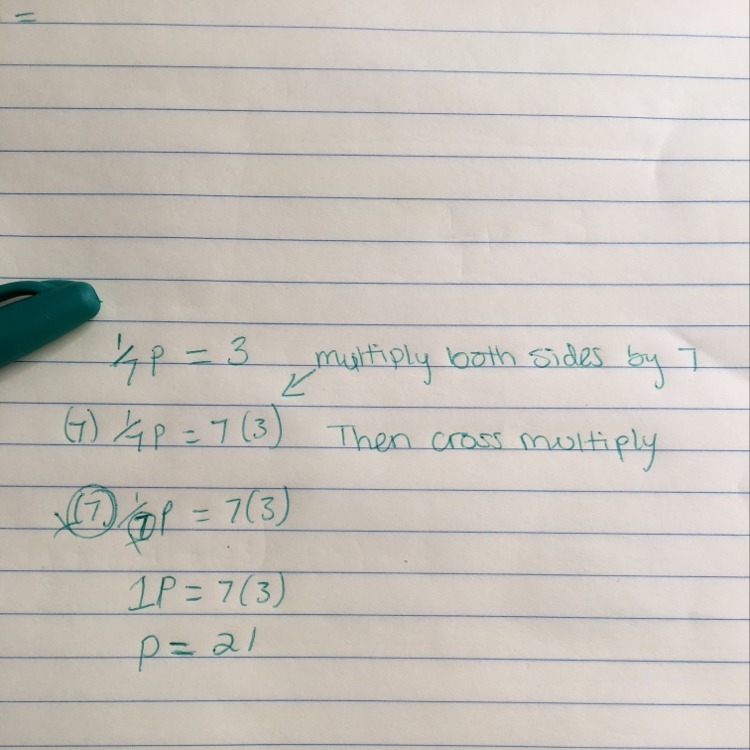 =
1/7 p = 3 multiply both sides by 7
(7) 1/7 p = 7(3) Then cross multiply
(7) 1/7 p = 7(3)
1p = 7(3)
p = 21